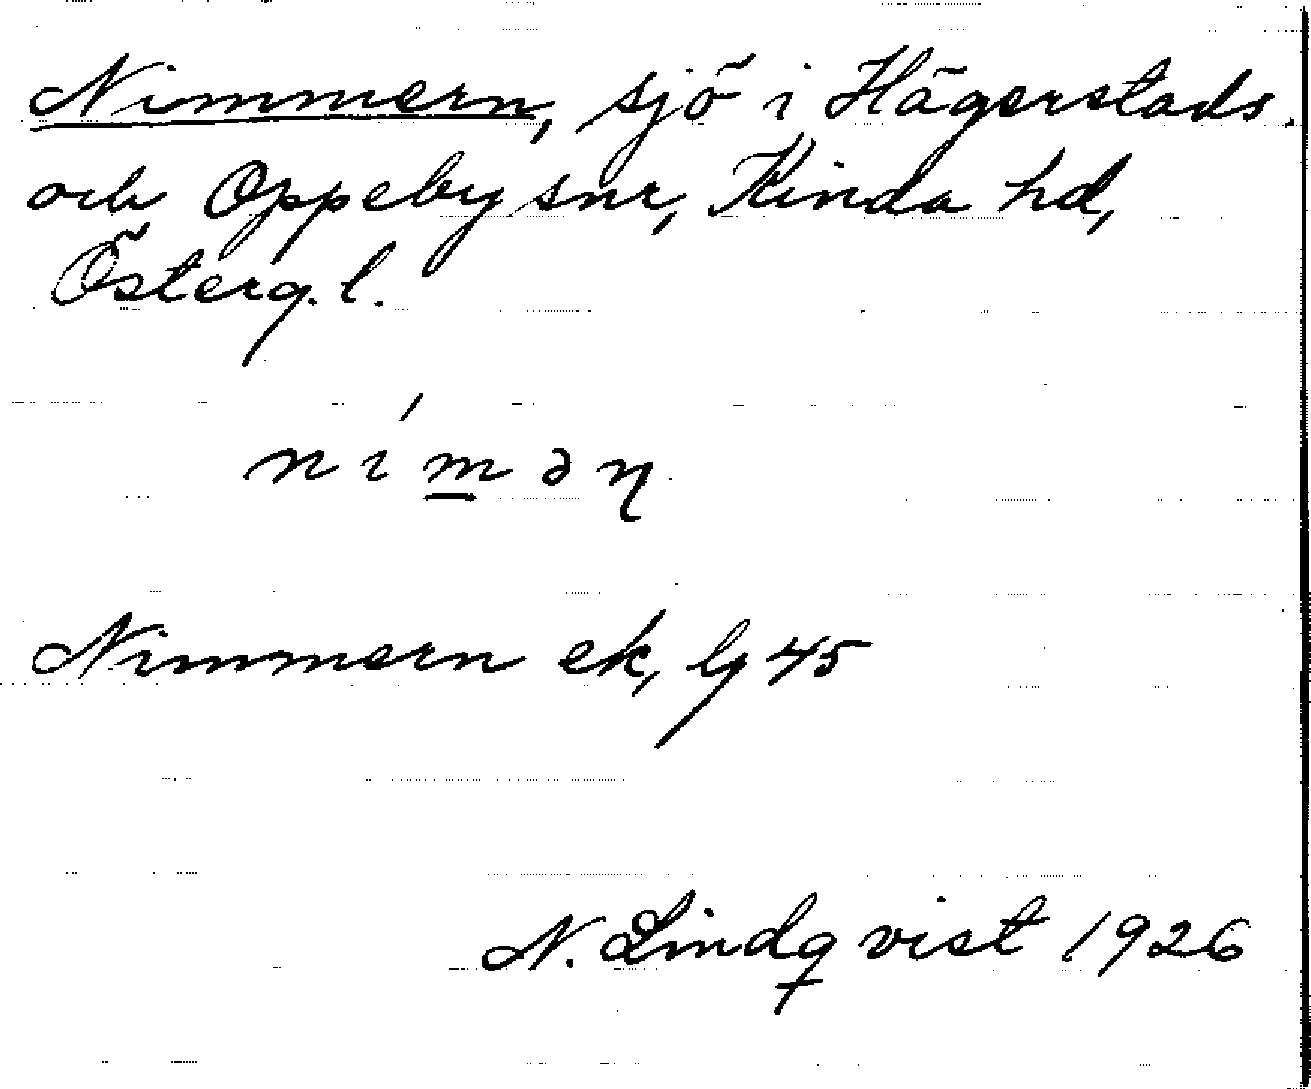 Nimmern, sjö i Hägerstads
och Oppeby snr, Kinda hd,
Österg. l.
ním̲əɳ
Nimmern ek, bg 45
N. Lindqvist 1926